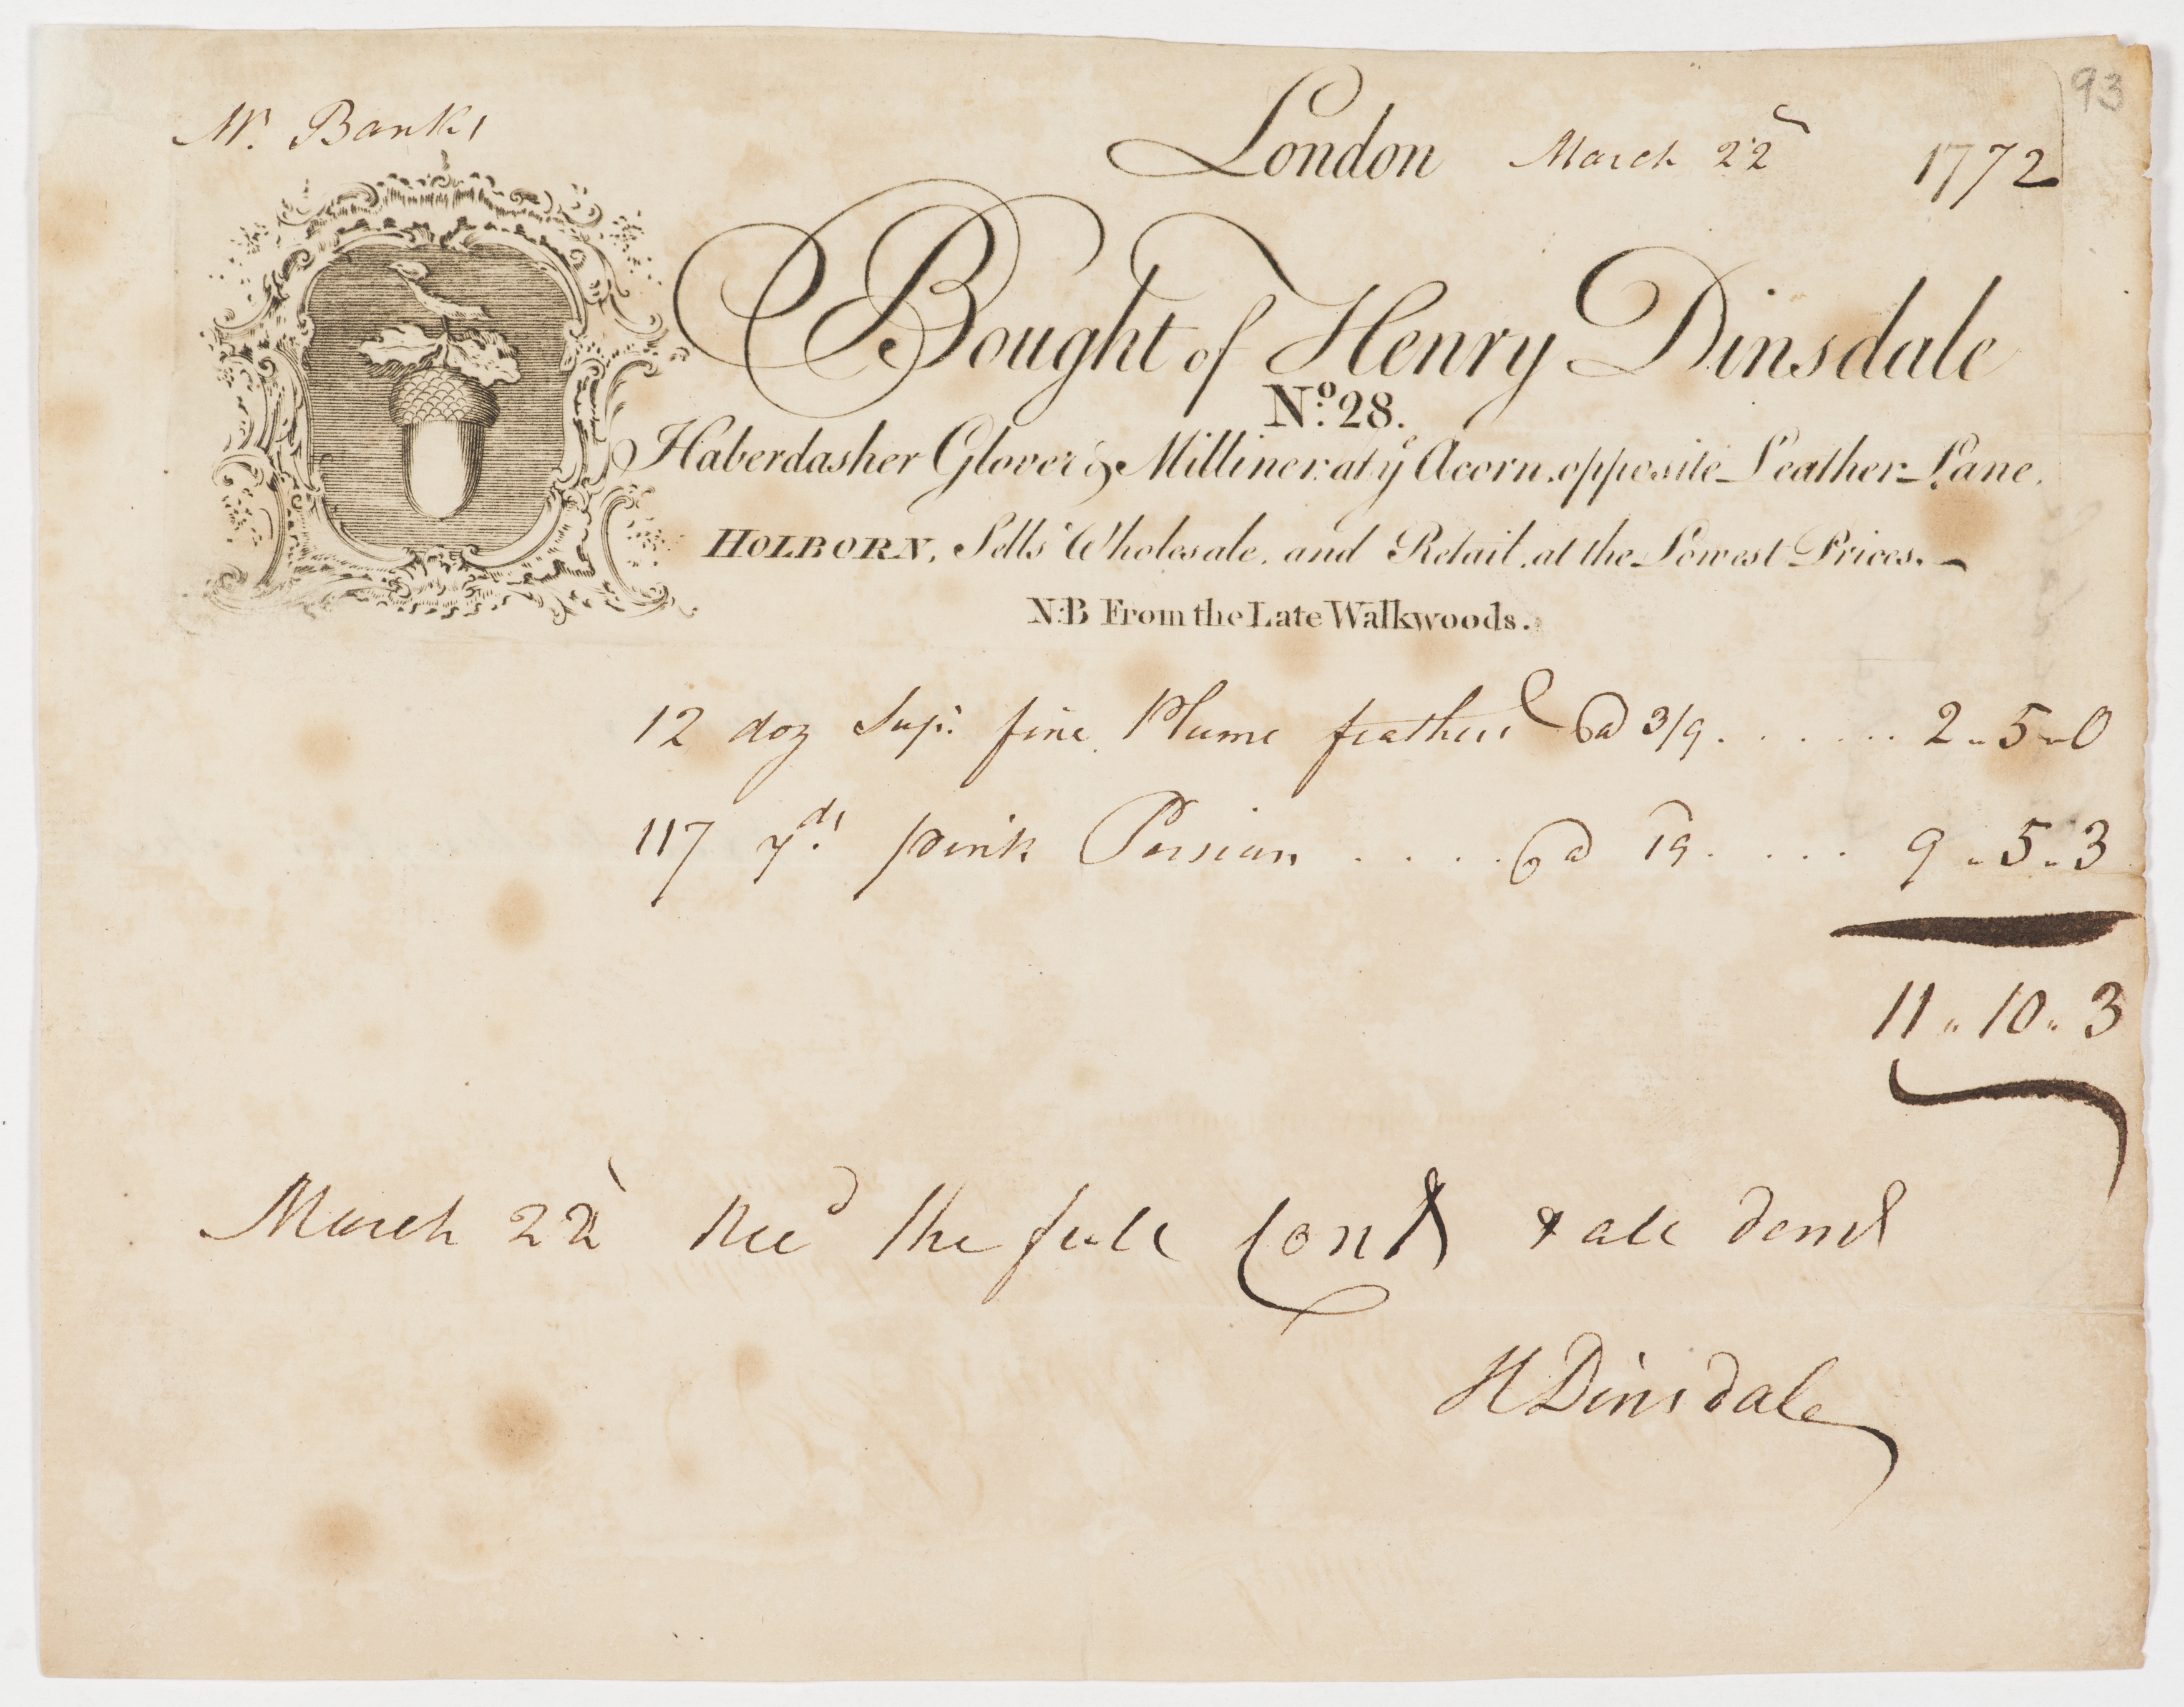 93
Mr. Banks
London March 22d 1772
Bought of Henry Dinsdale
No. 28.
Haberdasher Glover & Milliner at ye Acorn, opposite Leather Lane,
HOLBORN, Sells Wholesale, and Retail, at the Lowest Prices.
N:B From the Late Walkwoods.
12 doz Supr. fine Plume feathers @ 3/9 . . . . . . 2 " 5 " 0
117 yds. pink Persian . . . . @ 19 . . . . 9 " 5 " 3
11 " 10 " 3
March 22d Recd the full Conts & all demds
H Dinsdale